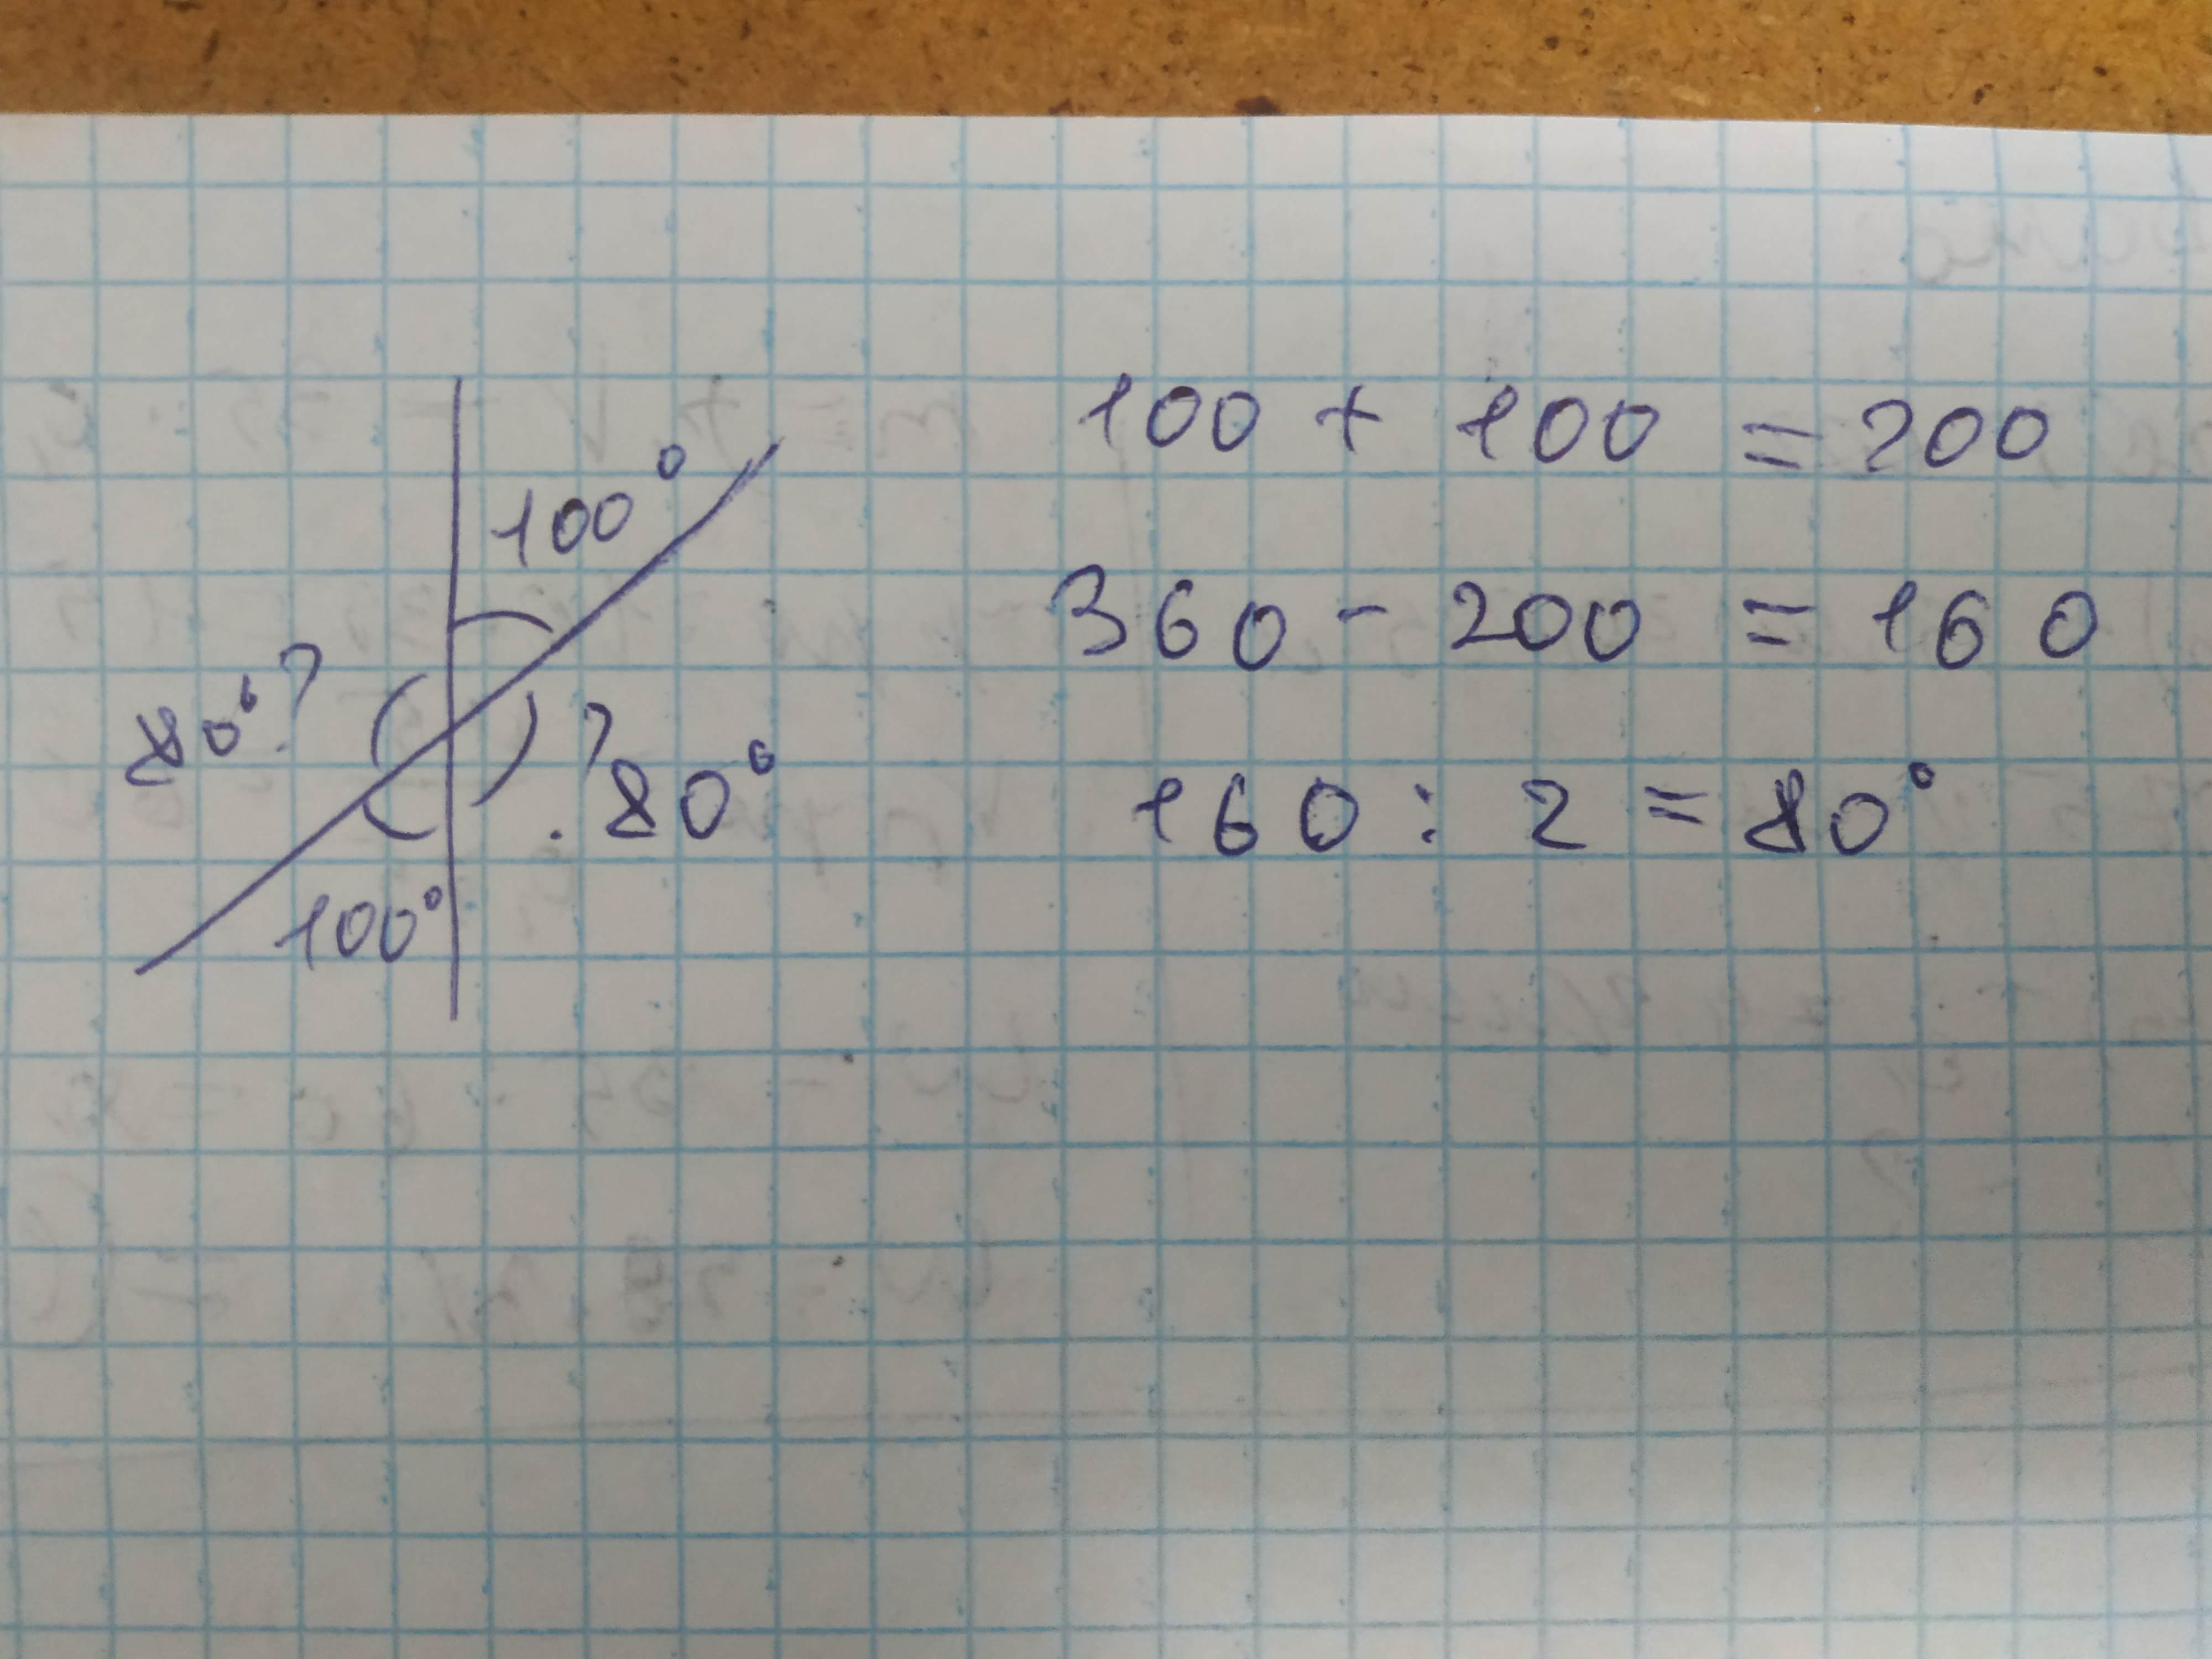 100°
80°?
?80°
100°
100 + 100 = 200
360 - 200 = 160
160 : 2 = 80°